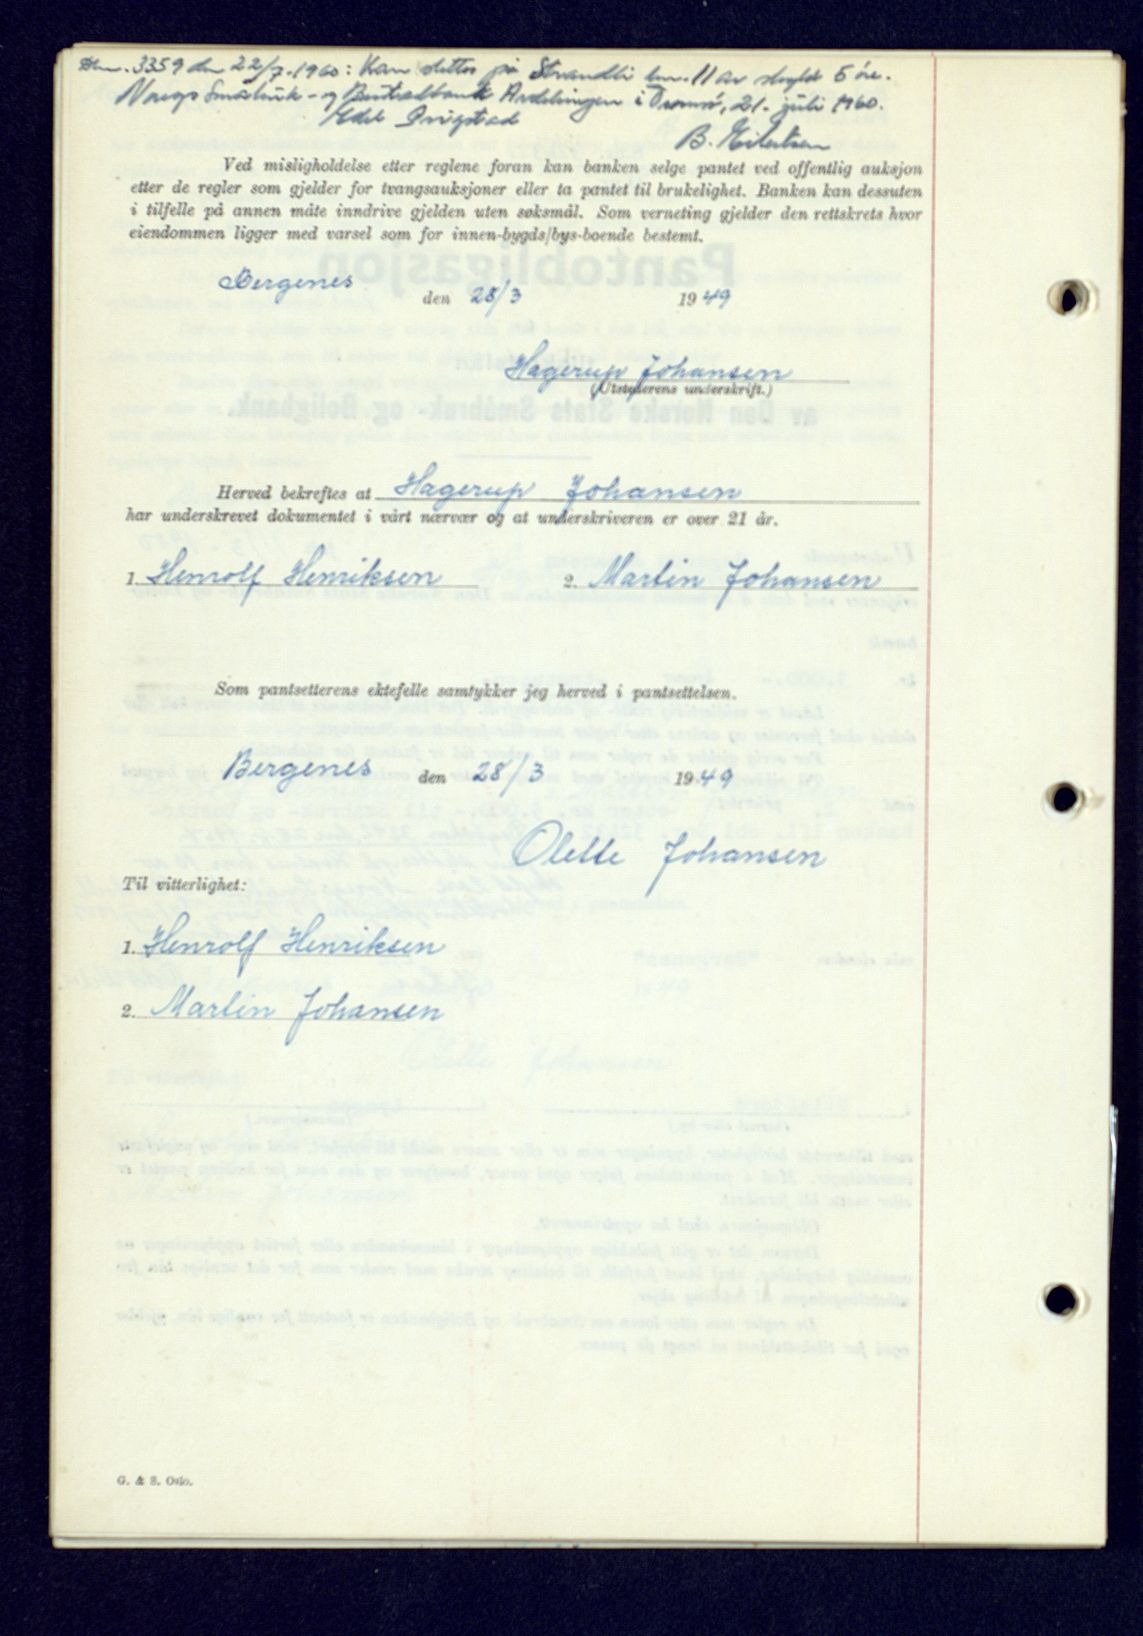 Dnr. 3359 den 22/7-1960: Kan slettes på Strandli bnr. 11 av skyld 5 øre.
Noregs Småbruk- og Bustadbank Avdelingen i Tromsø, 21. juli 1960.
B. Eilertsen
Ved misligholdelse etter reglene foran kan banken selge pantet ved offentlig auksjon
etter de regler som gjelder for tvangsauksjoner eller ta pantet til brukelighet. Banken kan dessuten
i tilfelle på annen måte inndrive gjelden uten søksmål. Som verneting gjelder den rettskrets hvor
eiendommen ligger med varsel som for innen-bygds/bys-boende bestemt.
Bergenes den 28/3 1949
Hagerup Johansen
(Utstederens underskrift.)
Herved bekreftes at Hagerup Johansen
har underskrevet dokumentet i vårt nærvær og at underskriveren er over 21 år.
1. Henrolf Henriksen 2. Martin Johansen
Som pantsetterens ektefelle samtykker jeg herved i pantsettelsen.
Bergenes den 28/3 1949
Olette Johansen
Til vitterlighet:
1. Henrolf Henriksen
2. Martin Johansen
G. & S. Oslo.